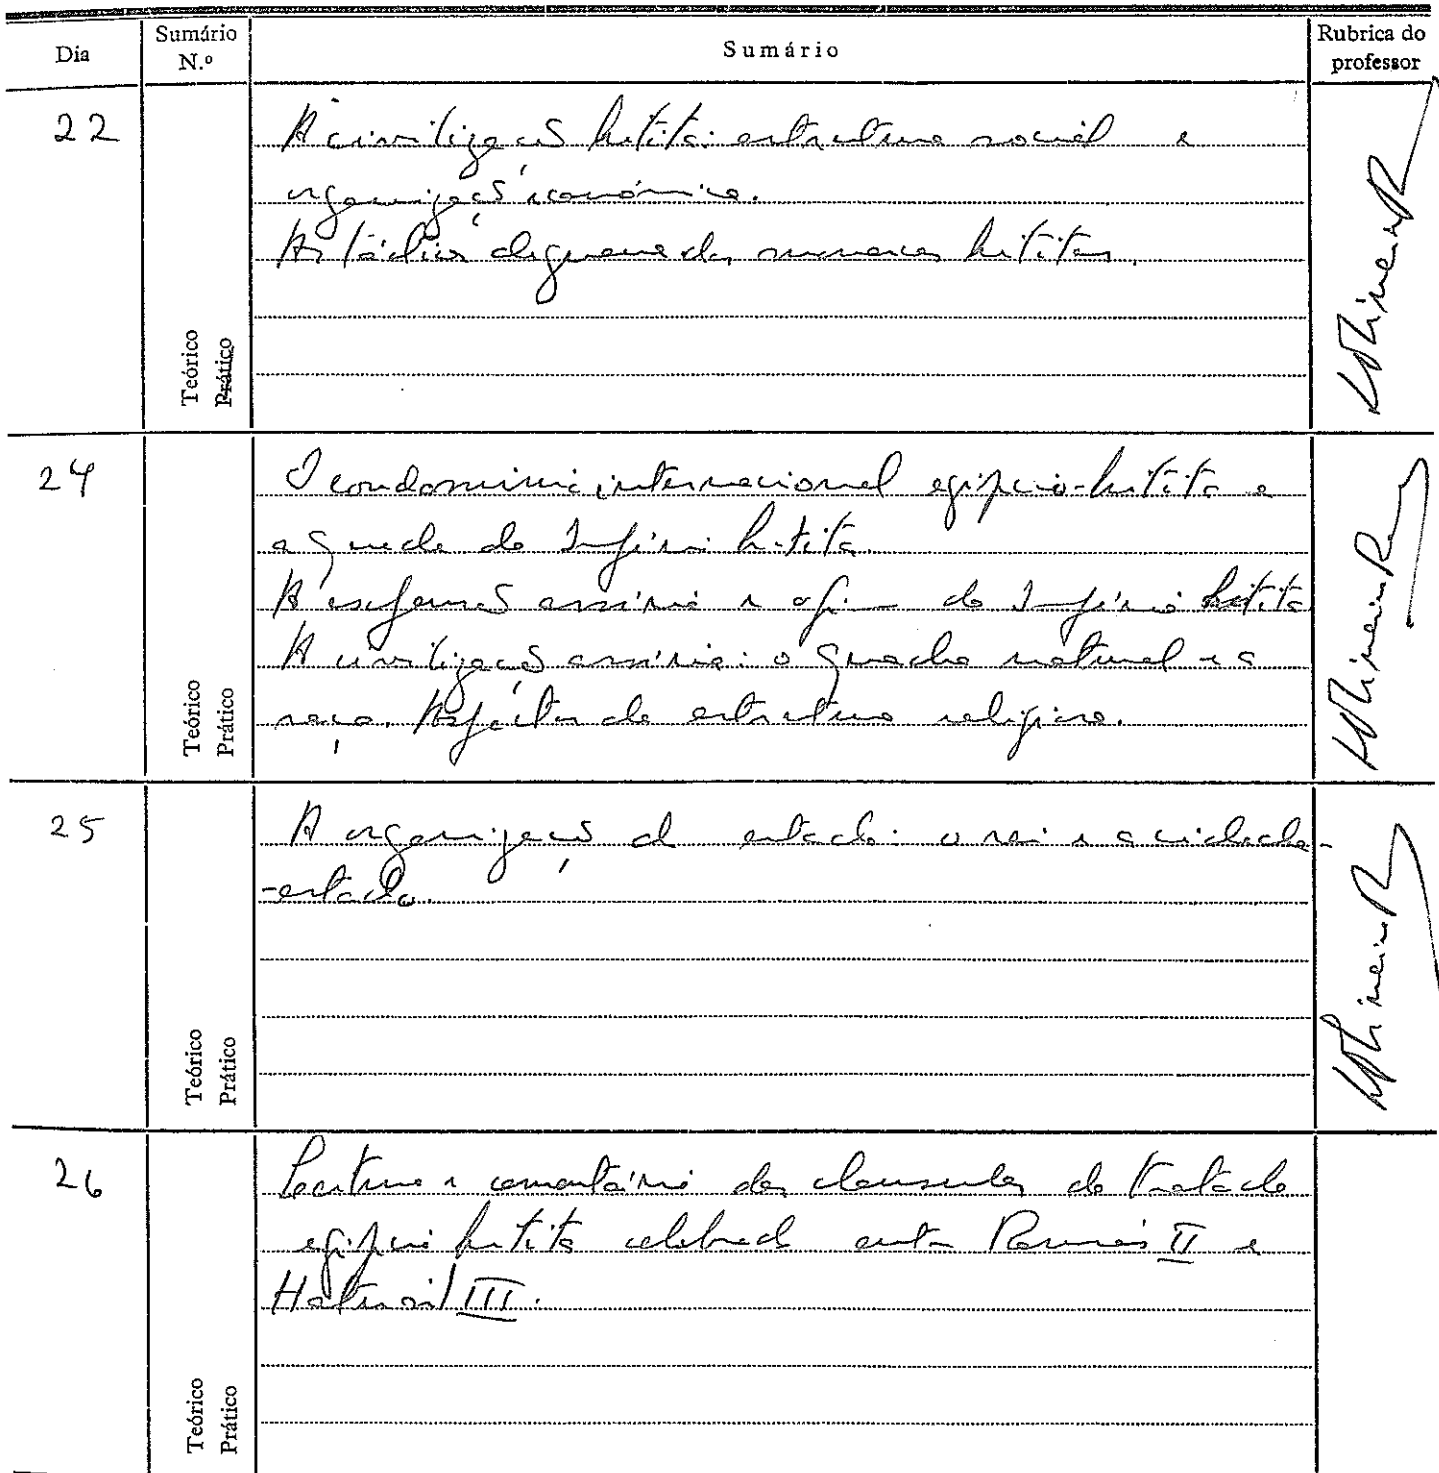 Dia
Sumário N.º
Sumário
Rubrica do professor
22
A civilização hitita: estrutura social e
organização económica.
As tácticas de guerra dos hititas.
Teórico
Prático
24
O condomínio internacional egípcio-hitita e
a queda do Império hitita.
A expansão assíria e o fim do Império hitita
A civilização assíria: o quadro natural e a
raça. Aspectos da estrutura religiosa.
Teórico
Prático
25
A organização do estado: o rei e a cidade-
-estado.
Teórico
Prático
26
Leitura e comentário das clausulas do tratado
egípcio hitita celebrado entre Ramsés II e
Hatusil III.
Teórico
Prático